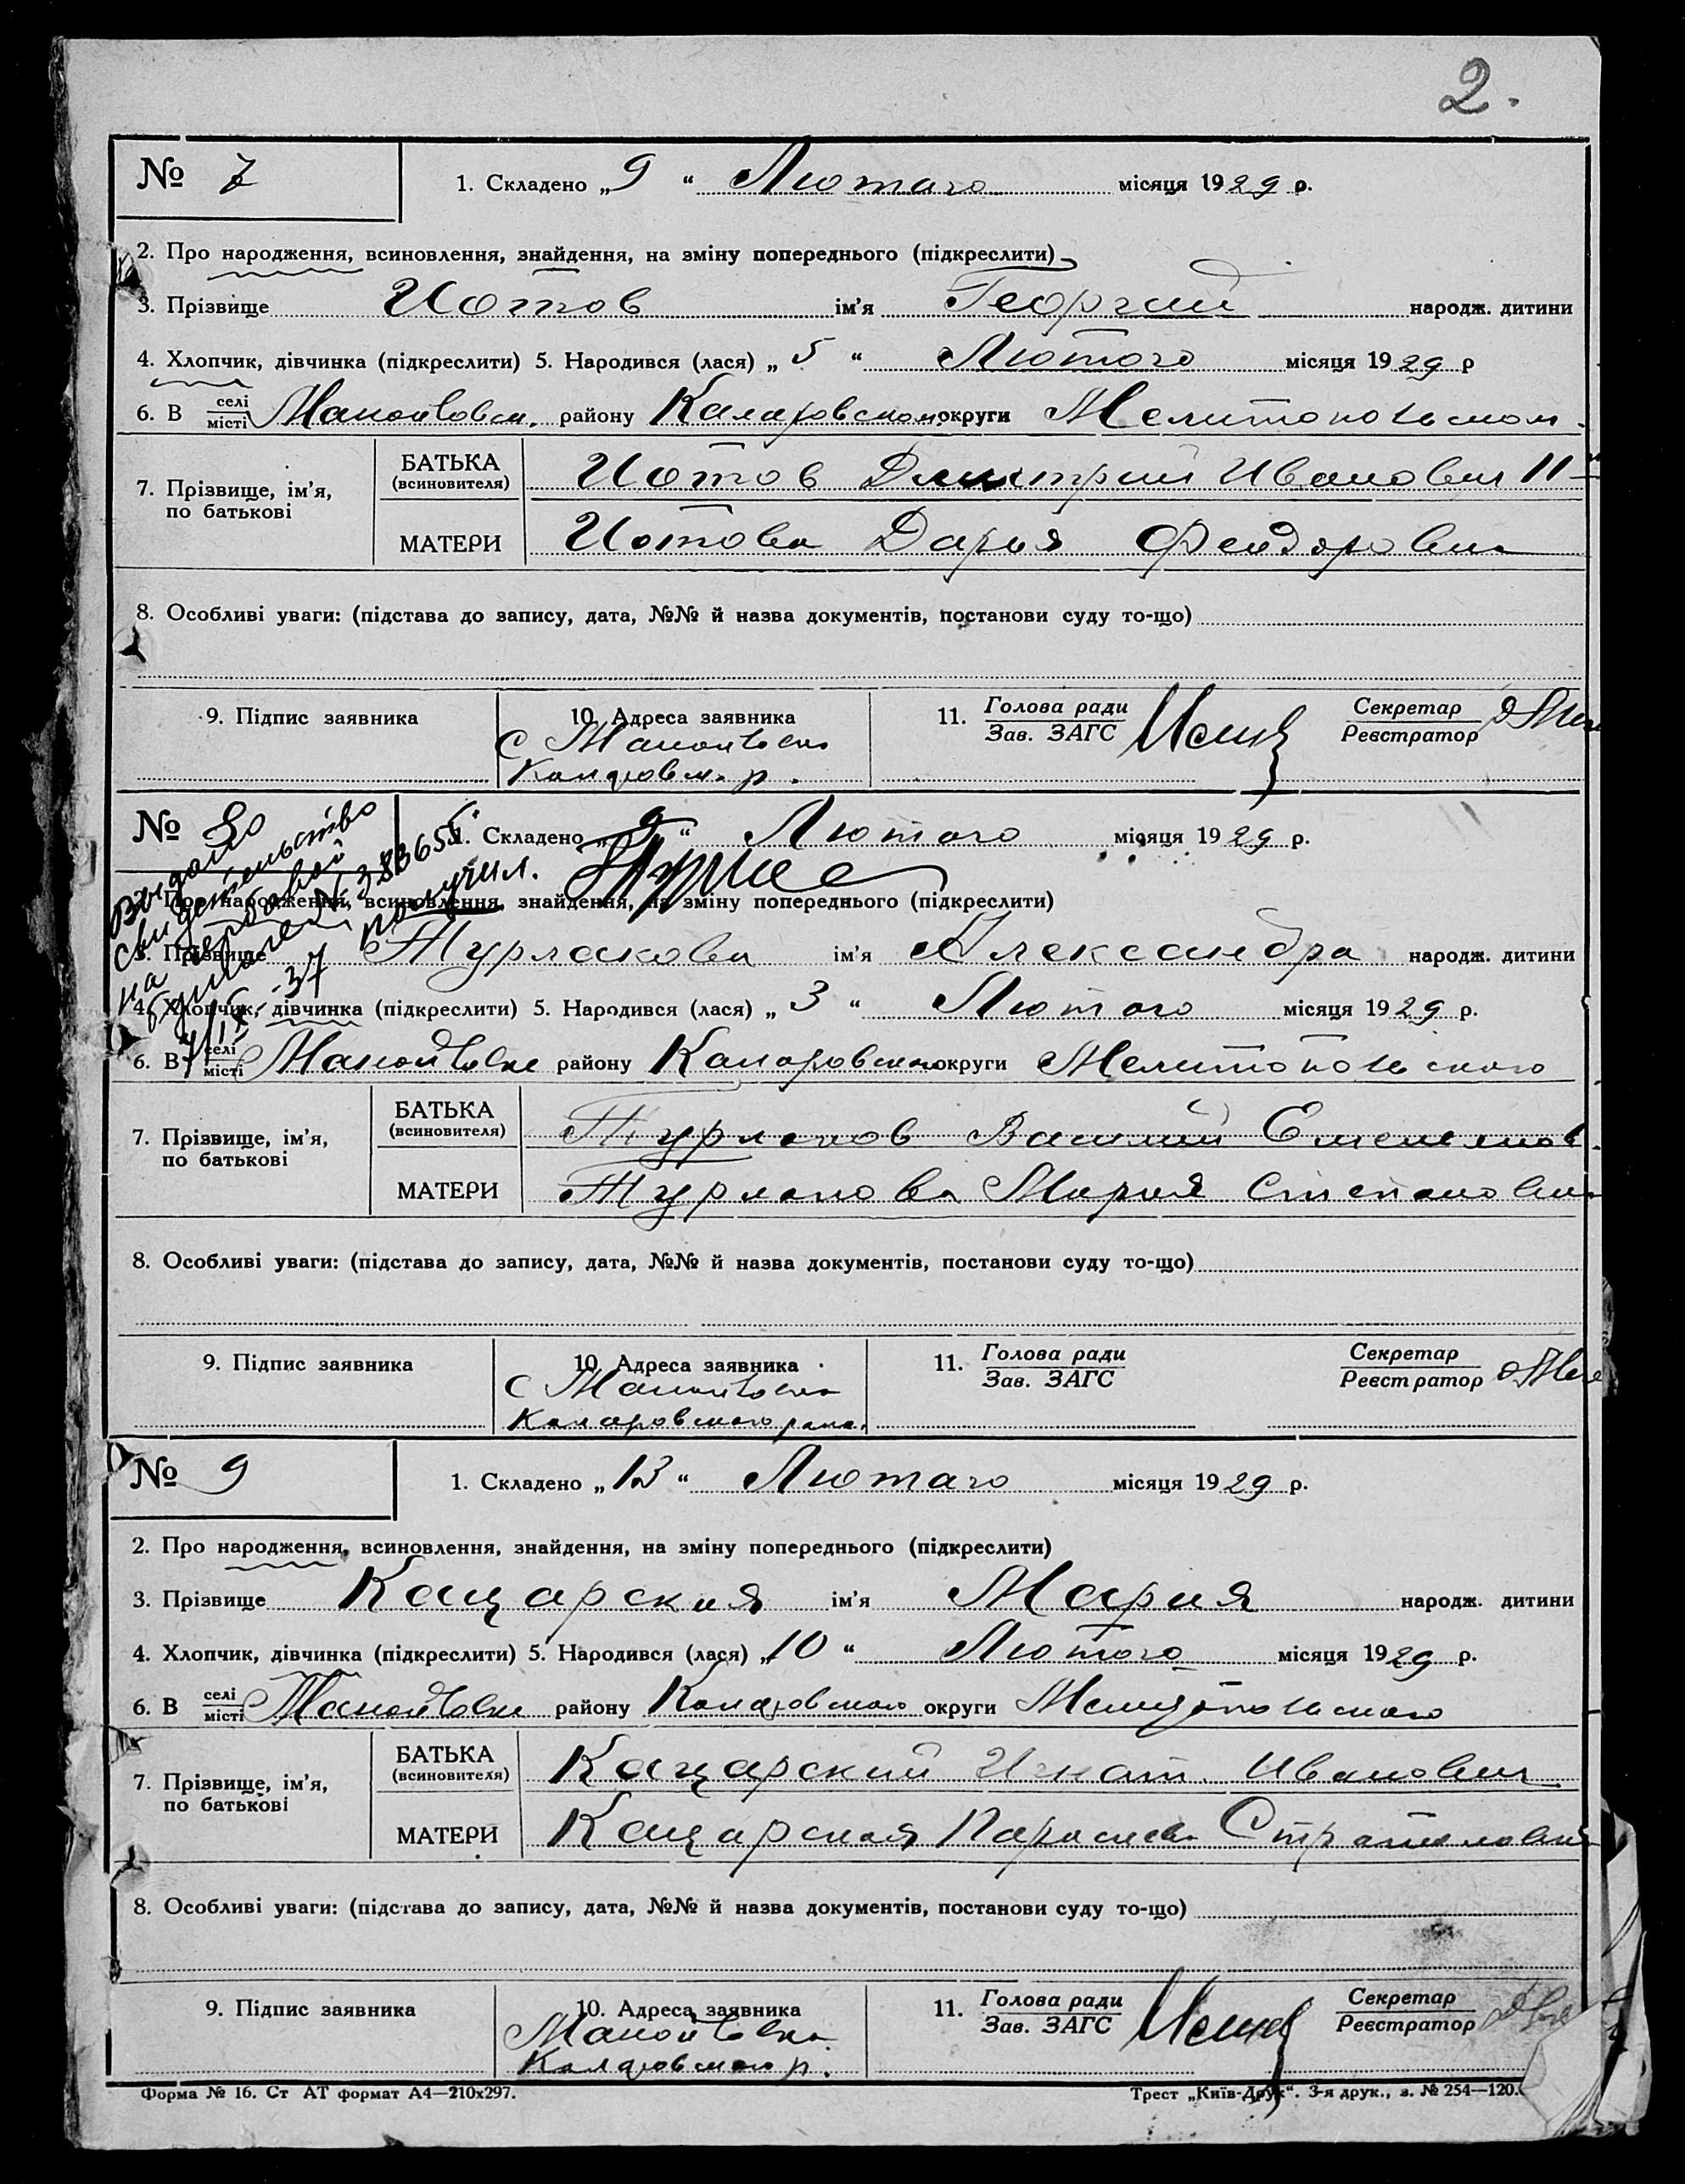 2.
№ 7
1. Складено „9“ Лютаго місяця 1929 р.
2. Про народження, всиновлення, знайдення, на зміну попереднього (підкреслити)
3. Прізвище Иотов ім'я Георгий народж. дитини
4. Хлопчик, дівчинка (підкреслити) 5. Народився (лася) „5“ Лютого місяця 1929 р
6. В селі місті району Коларовском округи Мелитопольском
7. Прізвище, ім'я, по батькові
БАТЬКА (всиновителя) Иотов Дмитрий Иванович II
МАТЕРИ Иотова Дарья Феодоровна
8. Особливі уваги: (підстава до запису, дата, №№ й назва документів, постанови суду то-що)
9. Підпис заявника
10. Адреса заявника
с
р.
11. Голова ради Зав. ЗАГС
Секретар Реєстратор
№ 8
1. Складено „9“ Лютого місяця 1929 р.
Видано
свидетельство
получил.
2. Про народження, всиновлення, знайдення, на зміну попереднього (підкреслити)
3. Прізвище Турлакова ім'я Александра народж. дитини
4. Хлопчик, дівчинка (підкреслити) 5. Народився (лася) „3“ Лютого місяця 1929 р.
6. В селі місті району округи Мелитопольского
7. Прізвище, ім'я, по батькові
БАТЬКА (всиновителя) Турлаков Василий
МАТЕРИ Турлакова Мария Степановна
8. Особливі уваги: (підстава до запису, дата, №№ й назва документів, постанови суду то-що)
9. Підпис заявника
10. Адреса заявника
с
Коларовского
11. Голова ради Зав. ЗАГС
Секретар Реєстратор
№ 9
1. Складено „13“ Лютаго місяця 1929 р.
2. Про народження, всиновлення, знайдення, на зміну попереднього (підкреслити)
3. Прізвище Кацарская ім'я Мария народж. дитини
4. Хлопчик, дівчинка (підкреслити) 5. Народився (лася) „10“ Лютого місяця 1929 р.
6. В селі місті району Коларовского округи Мелитопольского
7. Прізвище, ім'я, по батькові
БАТЬКА (всиновителя) Кацарский Игнат Иванович
МАТЕРИ Кацарская
8. Особливі уваги: (підстава до запису, дата, №№ й назва документів, постанови суду то-що)
9. Підпис заявника
10. Адреса заявника
Коларовского р.
11. Голова ради Зав. ЗАГС
Секретар Реєстратор
Форма № 16. Ст АТ формат А4—210х297.
Трест „Київ-Друк“. 3-я друк., з. № 254—120.